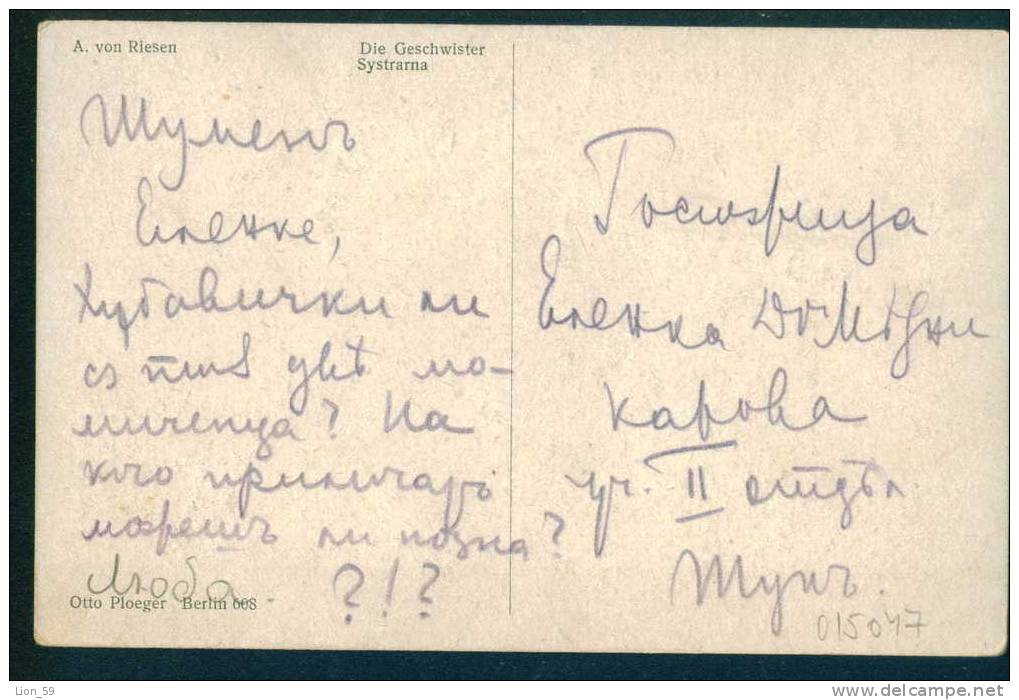 A. von Riesen
Die Geschwister
Systrarna
Шуменъ
Еленке,
Хубавички ли
сѫ тия двѣ мо-
миченца? На
кого приличатъ
можешъ ли позна?
Люба.
?!?
Otto Ploeger Berlin 608
Госпожица
Еленка
карова
уч. II отдѣл.
015047
Lion_59
www.delcampe.net